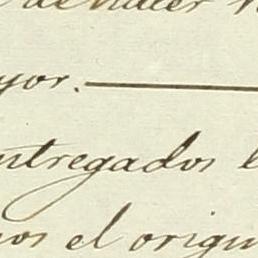 hacer
yor.
ntregados
nos el origin